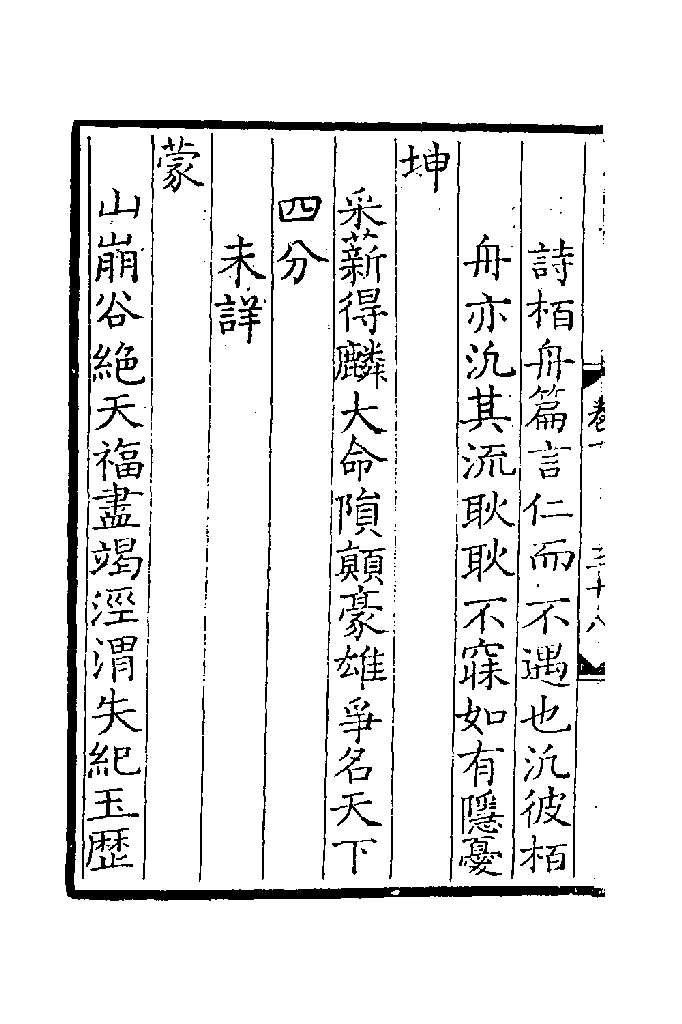 卷一
三十八
詩栢舟篇言仁而不遇也汎彼栢
舟亦汎其流耿耿不寐如有隱憂
坤
采薪得麟大命隕顛豪雄爭名天下
四分
未詳
蒙
山崩谷絶天福盡竭涇渭失紀玉歴